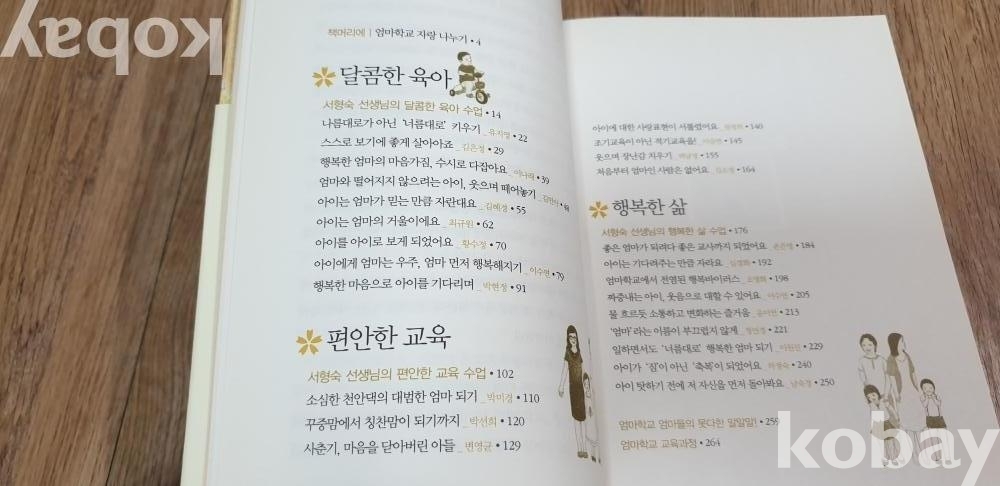 kobay
책머리에 | 엄마학교 자랑 나누기 • 4
달콤한 육아
서형숙 선생님의 달콤한 육아 수업 • 14
나름대로가 아닌 '너름대로' 키우기 _유지영 • 22
스스로 보기에 좋게 살아야죠 _김은정 • 29
행복한 엄마의 마음가짐, 수시로 다잡아요 _이나래 • 39
엄마와 떨어지지 않으려는 아이, 웃으며 떼어놓기
아이는 엄마가 믿는 만큼 자란대요 _김혜경 • 55
아이는 엄마의 거울이에요 _최규원 • 62
아이를 아이로 보게 되었어요 _황수정 • 70
아이에게 엄마는 우주, 엄마 먼저 행복해지기 _이수연 • 79
행복한 마음으로 아이를 기다리며 _박현정 • 91
편안한 교육
서형숙 선생님의 편안한 교육 수업 • 102
소심한 천안댁의 대범한 엄마 되기 _박미경 • 110
꾸중맘에서 칭찬맘이 되기까지 _박선희 • 120
사춘기, 마음을 닫아버린 아들 _변영균 • 129
아이에 대한 사랑표현이 서툴렀어요 • 140
조기교육이 아닌 적기교육을! • 145
웃으며 장난감 치우기 • 155
처음부터 엄마인 사람은 없어요 • 164
행복한 삶
서형숙 선생님의 행복한 삶 수업 • 176
좋은 엄마가 되려다 좋은 교사까지 되었어요 • 184
아이는 기다려주는 만큼 자라요 _김경화 • 192
엄마학교에서 전염된 행복바이러스 • 198
짜증내는 아이, 웃음으로 대할 수 있어요 • 205
물 흐르듯 소통하고 변화하는 즐거움 • 213
'엄마'라는 이름이 부끄럽지 않게 • 221
일하면서도 '너름대로' 행복한 엄마 되기 • 229
아이가 '짐'이 아닌 '축복'이 되었어요 • 240
아이 탓하기 전에 저 자신을 먼저 돌아봐요 _남숙경 • 250
엄마학교 엄마들의 못다한 말말말! • 259
엄마학교 교육과정 • 264
kobay